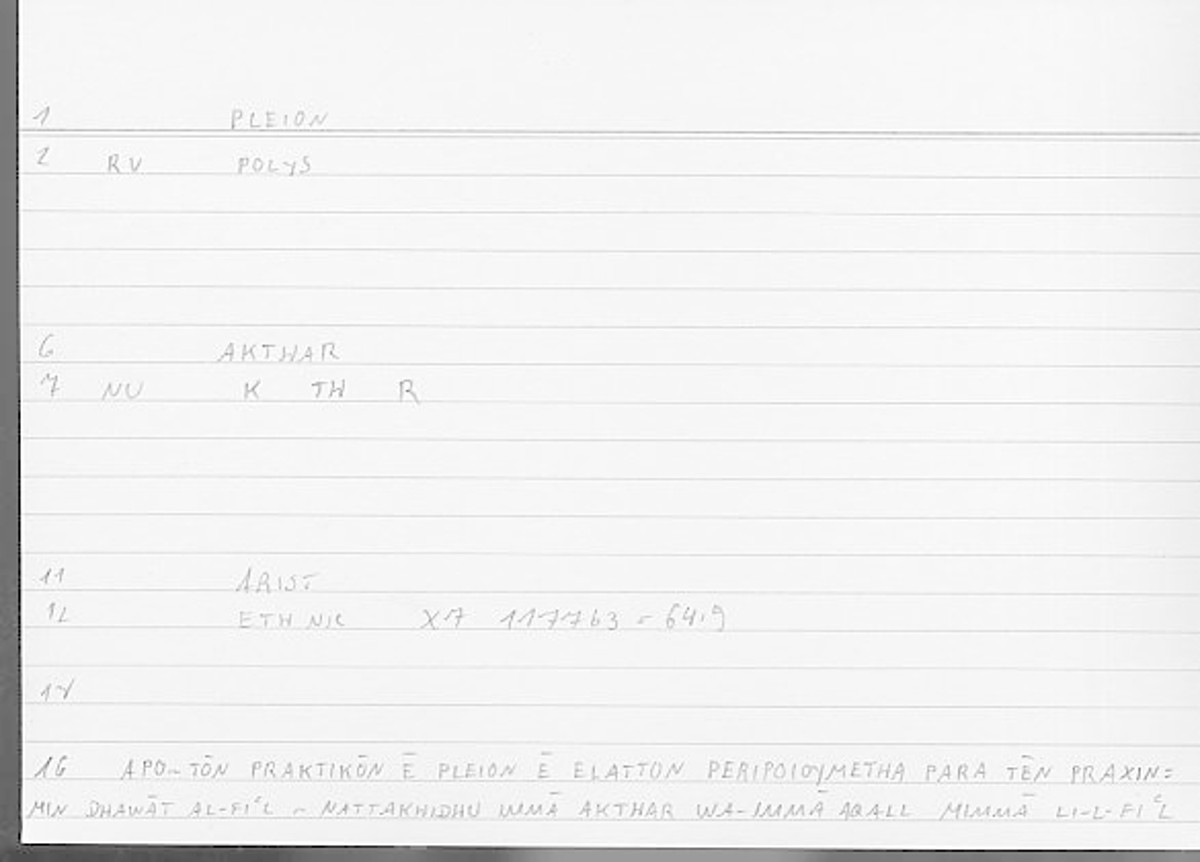 1 PLEION
2 RV POLYS
6 AKTHAR
7 NU K TH R
11 ARIST
12 ETH NIC X7 117763 = 64.9
14
16 APO~ TŌN PRAKTIKŌN Ē PLEION Ē ELATTON PERIPOIOYMETHA PARA TĒN PRAXIN =
MIN DHAWĀT AL-FIᶜL ~ NATTAKHIDHU IMMĀ AKTHAR WA-IMMĀ AQALL MIMMĀ LI-L-FIᶜL